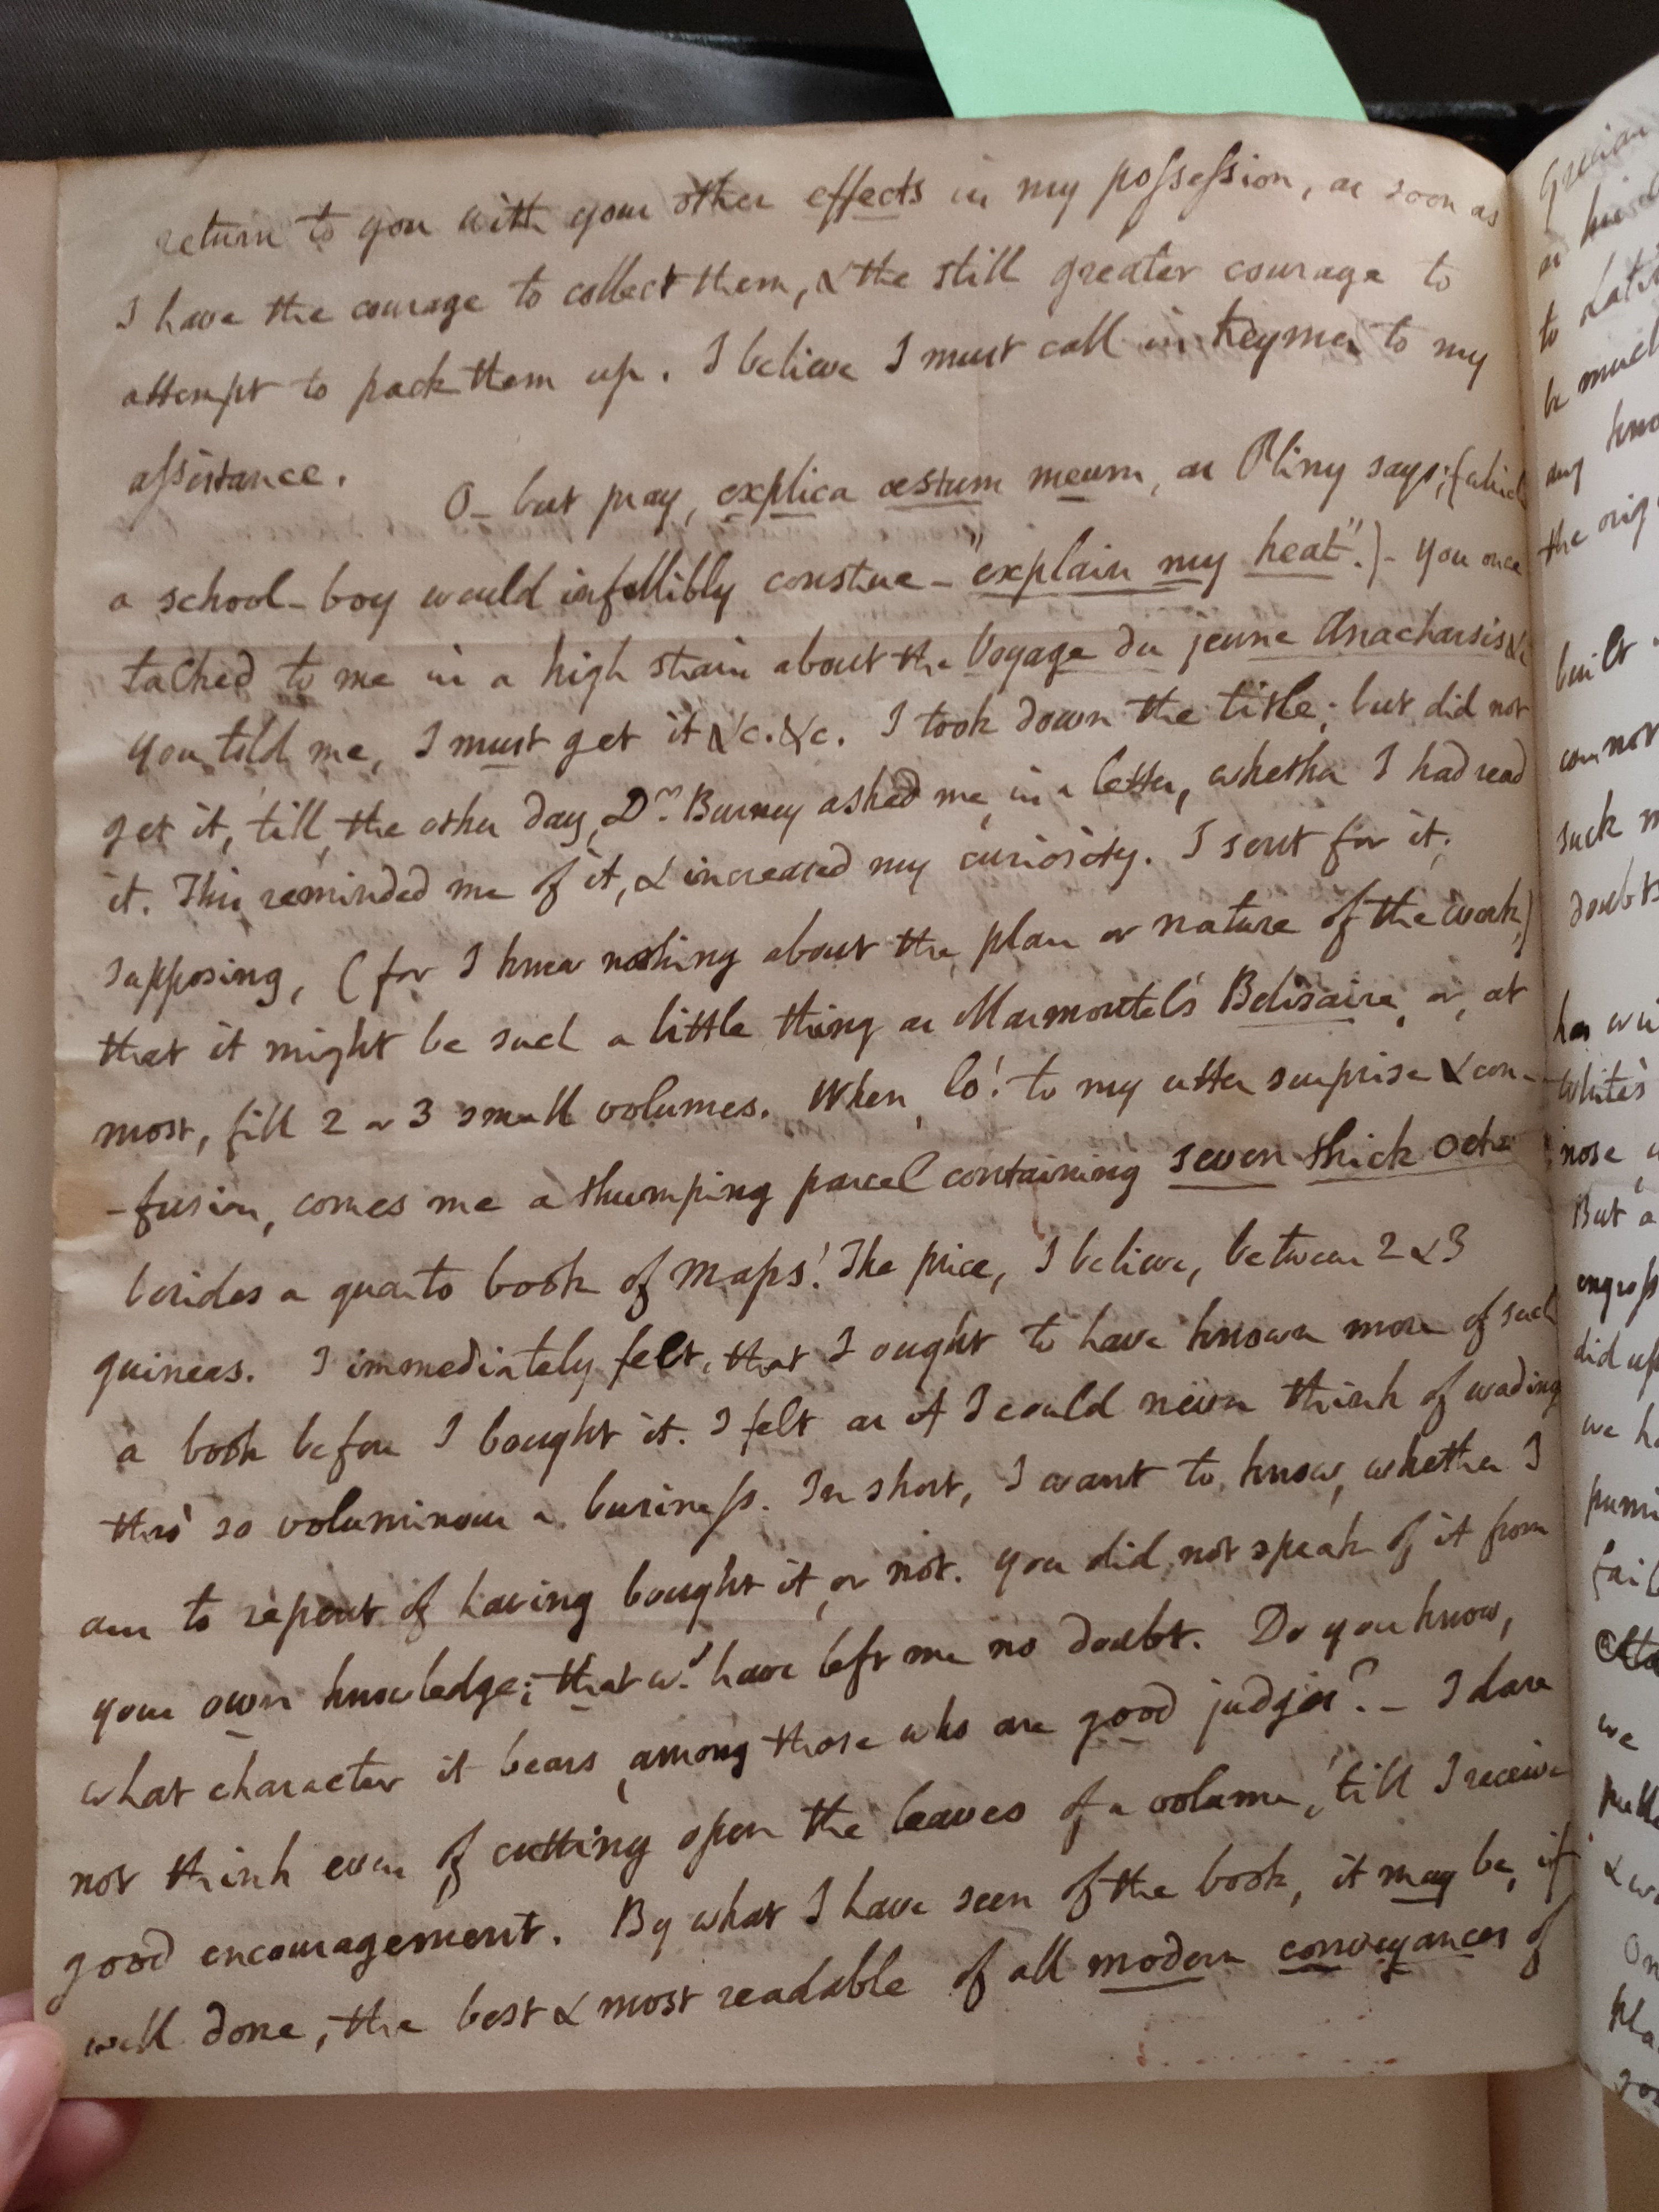 return to you with your other effects in my possession, as soon as
I have the courage to collect them, & the still greater courage to
attempt to pack them up. I believe I must call in Keymer to my
assistance.
O – but pray, explica æstum meum, as Pliny says; (which
a school-boy would infallibly construe – "explain my heat".) – You once
talked to me in a high strain about the Voyage du jeune Anacharsis &c
you told me, I must get it &c. &c. I took down the title; but did not
get it, till, the other day, Dr. Burney asked me, in a letter, whether I had read
it. This reminded me of it, & increased my curiosity. I sent for it;
supposing, (for I knew nothing about the plan or nature of the work,)
that it might be such a little thing as Marmontel's Belisaire, or, at
most, fill 2 or 3 small volumes. When, lo! to my utter surprise & con-
-fusion, comes me a thumping parcel containing seven thick
besides a quarto book of maps! The price, I believe, between 2 & 3
guineas. I immediately felt, that I ought to have known more of such
a book before I bought it. I felt as if I could never think of wading
thro' so voluminous a business. In short, I want to know, whether I
am to repent of having bought it, or not. You did not speak of it from
your own knowledge; that wd. have left me no doubt. Do you know,
what character it bears, among those who are good judges? – I dare
not think even of cutting open the leaves of a volume, 'till I receive
good encouragement. By what I have seen of the book, it may be, if
well done, the best & most readable of all modern conveyances of
Grecian
to
be much
any
the orig
built
cannot
such
doubts
has
White's
nose
But a
engross
did
we
we
&